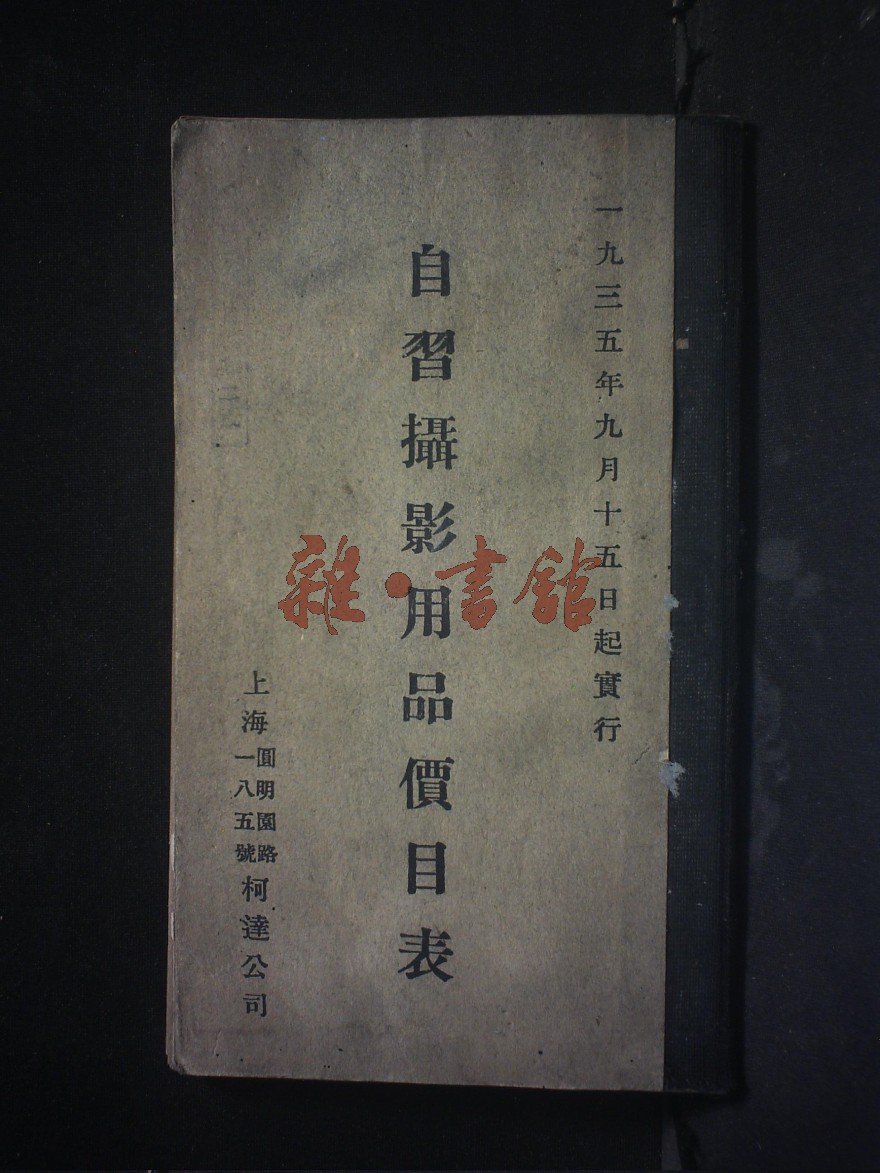 一九三五年九月十五日起實行
自習攝影用品價目表
上海圓明園路一八五號柯達公司
雜·書館